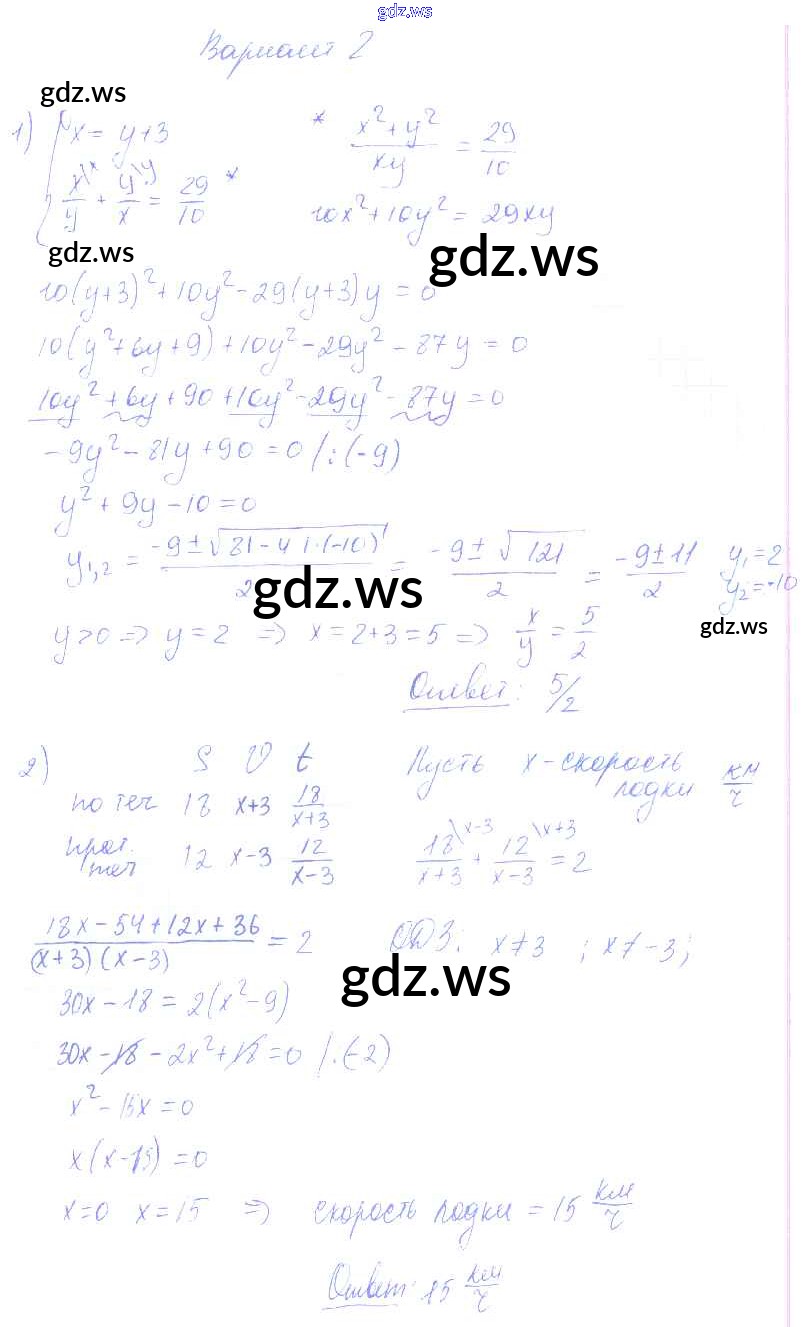 gdz.ws
Вариант 2
gdz.ws
1) { x = y+3 * (x²+y²)/(xy) = 29/10
x/y \x + y/x \y = 29/10 * 10x²+10y² = 29xy
gdz.ws gdz.ws
10(y+3)²+10y²-29(y+3)y = 0
10(y²+6y+9)+10y²-29y²-87y = 0
10y²+6y+90+10y²-29y²-87y = 0
-9y²-81y+90 = 0 /:(-9)
y²+9y-10=0
y₁,₂ = (-9±√(81-4·1·(-10)))/2 = (-9±√121)/2 = (-9±11)/2 y₁=2
y₂=-10
gdz.ws
gdz.ws
y>0 => y=2 => x=2+3=5 => x/y = 5/2
Ответ: 5/2
2) S V t Пусть x-скорость
лодки км/ч
по теч 18 x+3 18/(x+3)
прот. теч 12 x-3 12/(x-3) 18/(x+3) \x-3 + 12/(x-3) \x+3 = 2
(18x-54+12x+36)/((x+3)(x-3)) = 2 ОДЗ: x≠3 ; x≠-3;
gdz.ws
30x-18 = 2(x²-9)
30x-18-2x²+18=0 /:(-2)
x²-15x=0
x(x-15)=0
x=0 x=15 => скорость лодки = 15 км/ч
Ответ: 15 км/ч